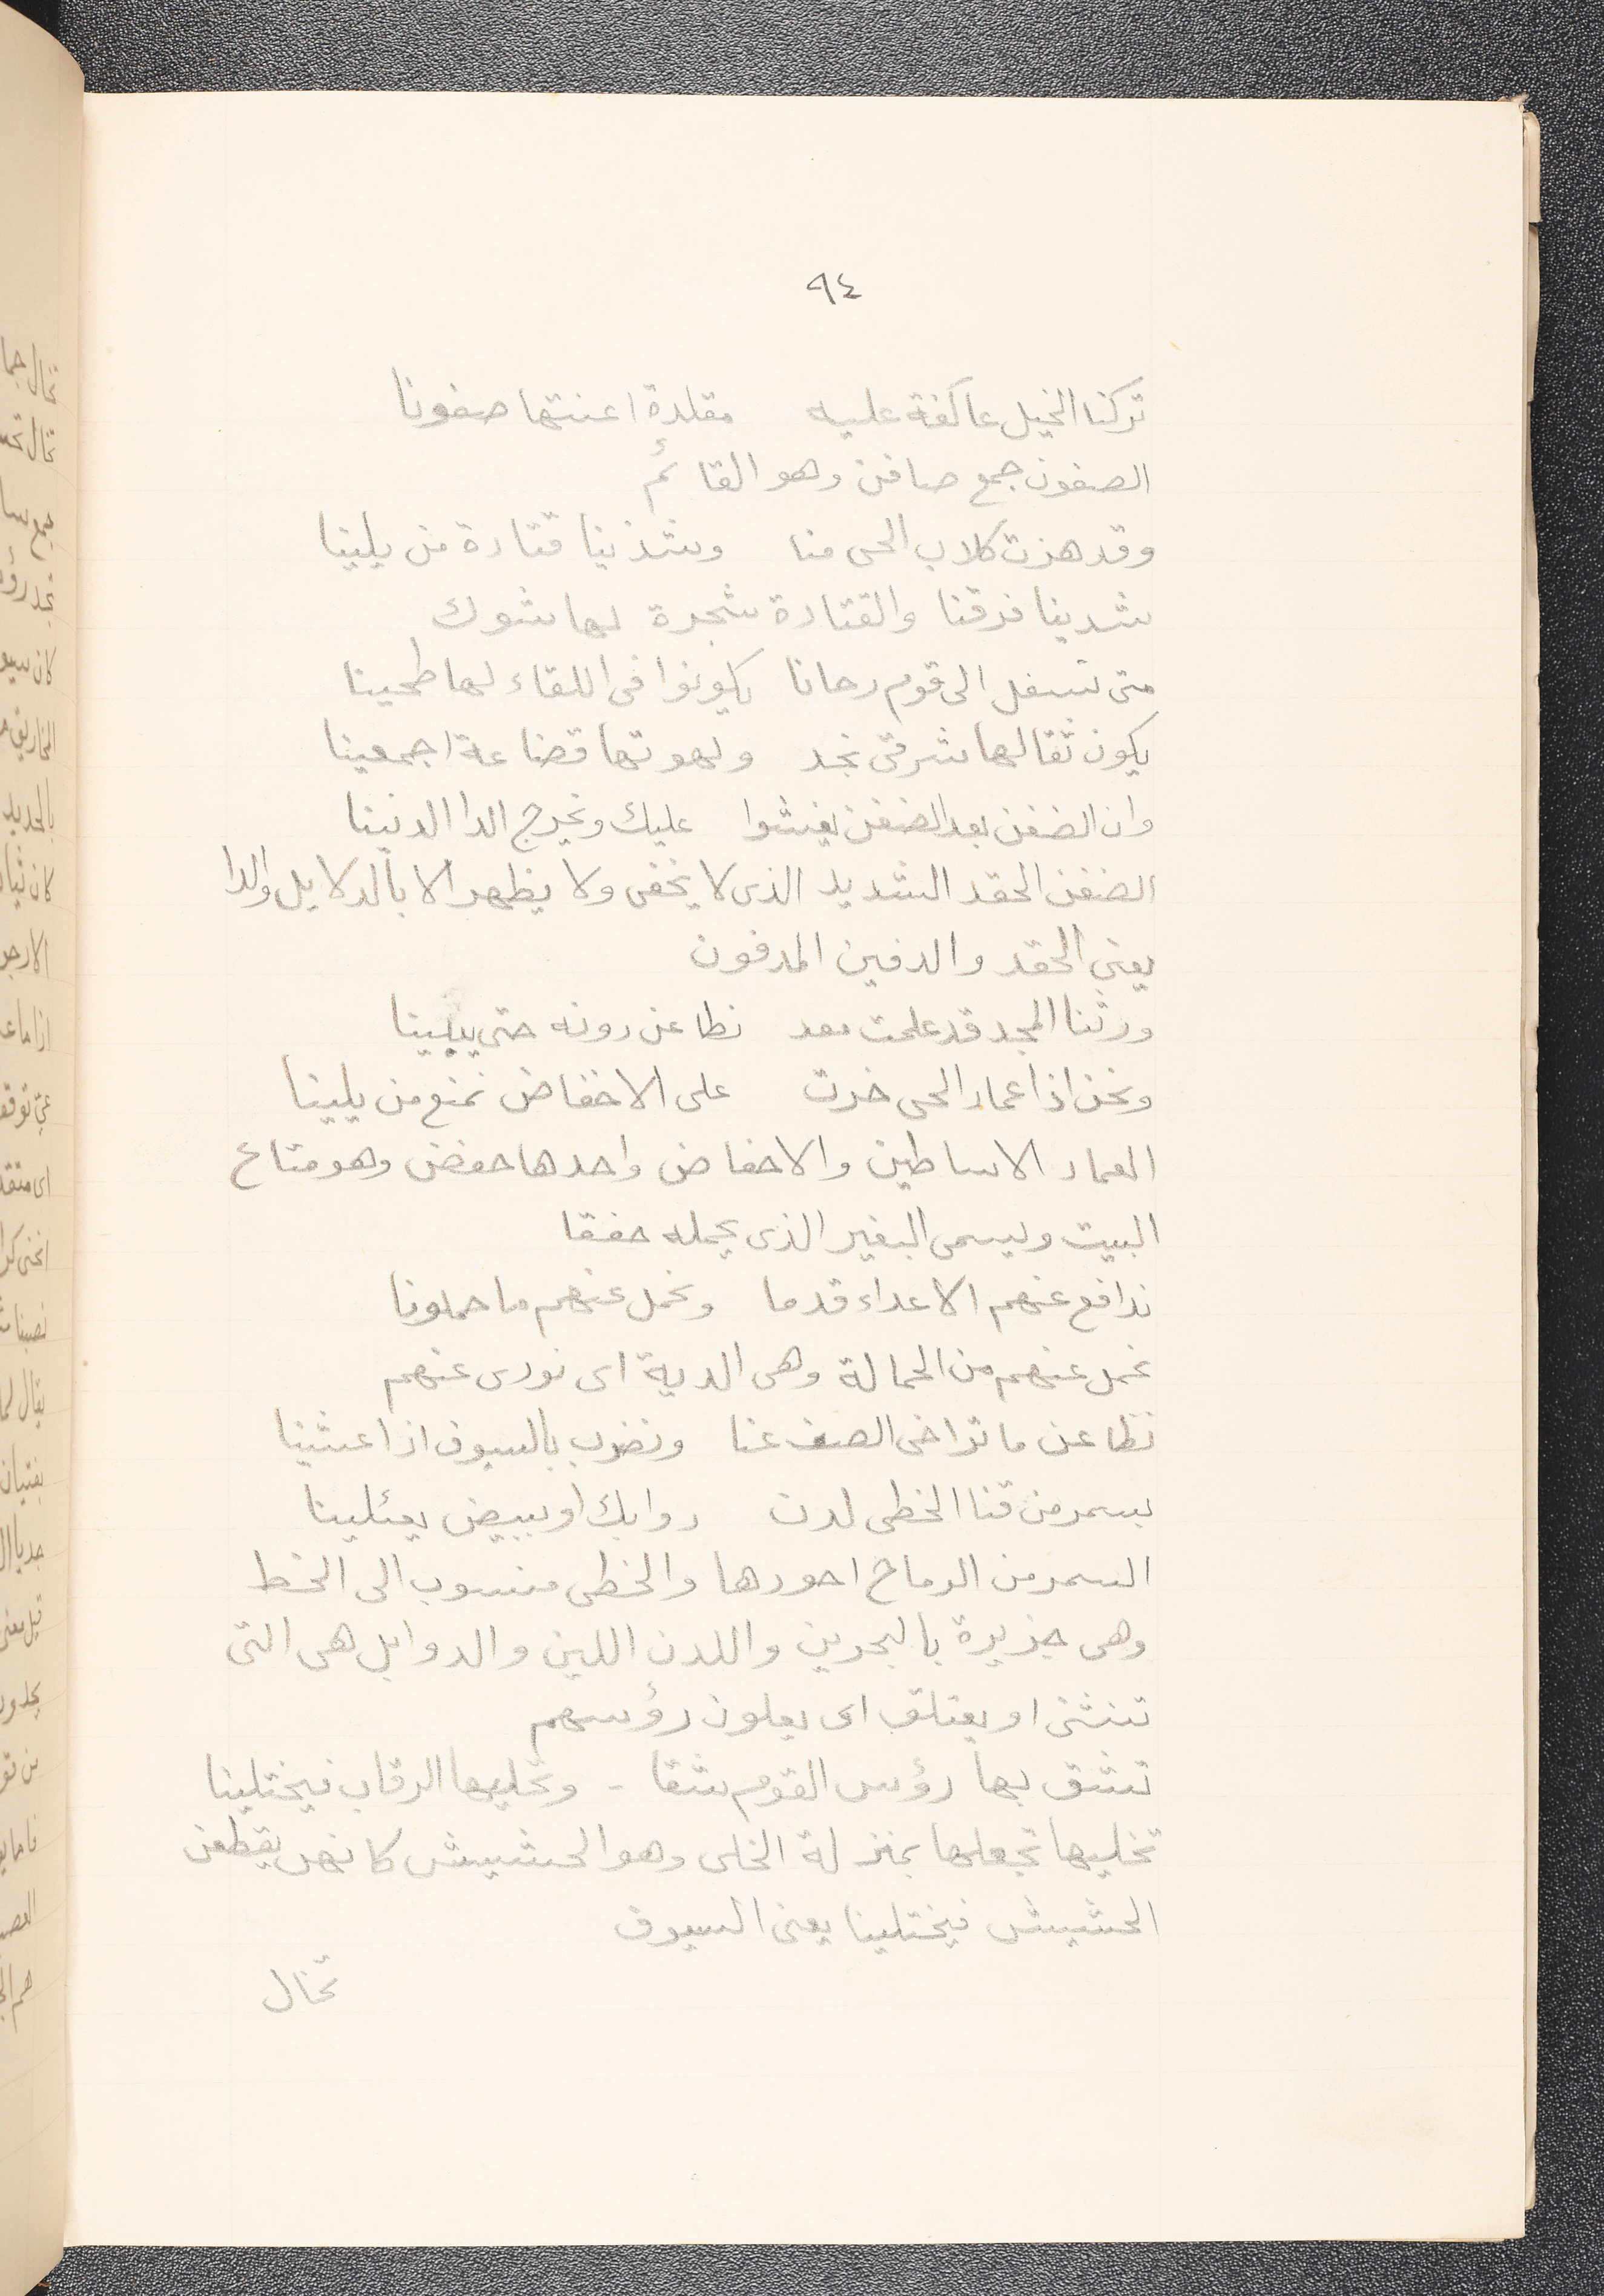 ٩٤
تركنا الخيل عاكفة عليه مقلدة اعنتها صفونا
الصفون جمع صافن وهو القائم
وقد هزت كلاب الحى منا وشذينا قتادة من يلينا
شدينا فرقنا والقتادة شجرة لها شوك
متى ننسفل الى قوم رحانا يكونوا فى اللقاء لها طحينا
يكون ثقالها شرقى نجد ولهوتها قضاعة اجمعينا
وان الضغن بعد الضغن يفشوا عليك ويخرج الدا الدفينا
الضغن الحقد الشديد الذى لا يخفى ولا يظهر الا بالدلايل والدا
يعنى الحقد والدفين المدفون
ورثنا المجد قد علمت معد نطاعن دونه حتى يبينا
ونحن اذا عماد الحى خرت على الاخفاض نمنع من يلينا
العماد الاساطين والاحفاض واحدها حفض وهو متاع
البيت ويسمى البغير الذى يحمله حفقا
ندافع عنهم الاعداء قدما ونحمل عنهم ما حملونا
نحمل عنهم من الحمالة وهى الدية اى نودى عنهم
نطاعن ما تراخى الصف عنا ونضرب بالسيوف اذا غشينا
بسمر من قنا الخطى لدن دوابل او ببيض يعتلينا
السمر من الرماح اجودها والخطى منسوب الى الخط
وهى جزيرة بالبحرين واللدن اللين والدوابل هى التى
تنثنى او يعتلق اى يعلون رؤسهم
تشق بها رؤس القوم شقا - وتخليها الرقاب فيختلينا
تخليها تجعلها بمنزلة الخلى وهو الحشيش كانهن يقطعن
الحشيش فيختلينا يعنى السيوف
تخال